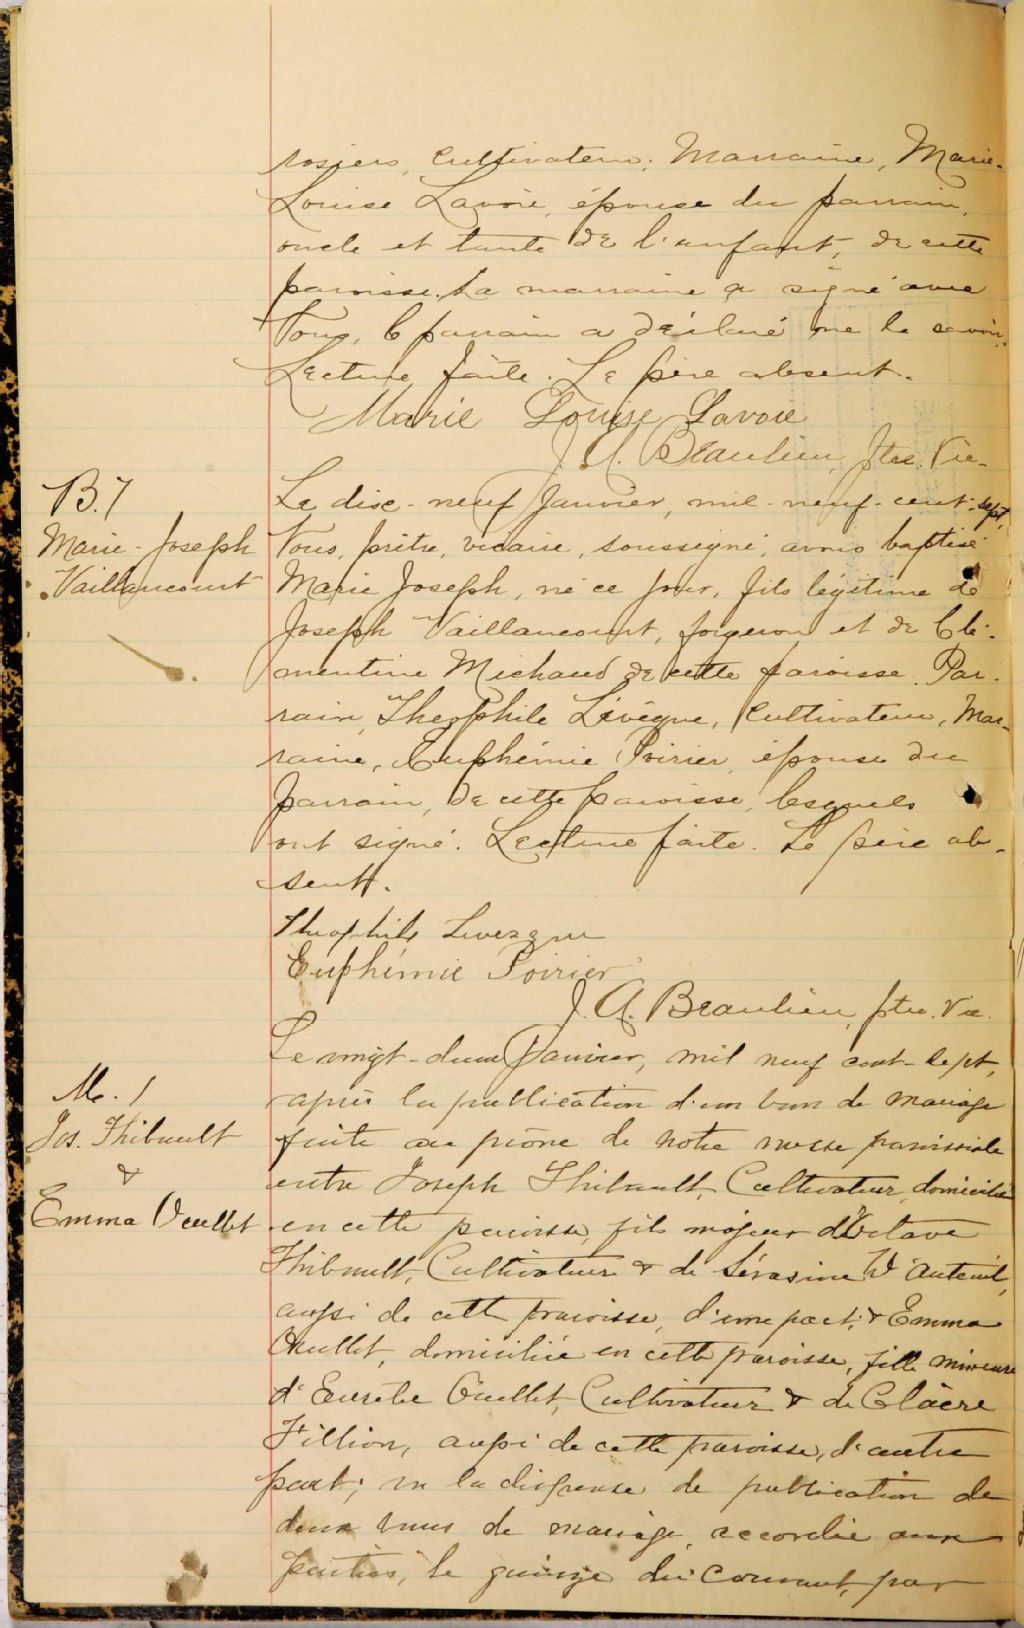 rosiers, cultivateur. Marraine, Marie-
Louise Lavoie, épouse du parrain,
oncle et tante de l'enfant, de cette
paroisse. La marraine a signé avec
Nous, le parrain a déclaré ne le savoir.
Lecture faite. Le père absent.
Marie Louise Lavoie
J. A. Beaulieu, Ptre. Vic.
B. 7
Marie-Joseph
Vaillancourt
Le dix-neuf Janvier, mil-neuf-cent-sept,
Nous, prêtre, vicaire, soussigné, avons baptisé
Marie Joseph, né ce jour, fils légitime de
Joseph Vaillancourt, forgeron et de Clé-
mentine Michaud de cette paroisse. Par-
rain, Théophile Lévêque, cultivateur, Mar-
raine, Euphémie Poirier, épouse du
parrain, de cette paroisse, lesquels
ont signé. Lecture faite. Le père ab-
sent.
Theophile Levesque
Euphémie Poirier
J. A. Beaulieu, ptre. Vic.
M. 1
Jos. Thibault
&
Emma Ouellet
Le vingt-deux Janvier, mil neuf cent-sept,
après la publication d'un ban de mariage
faite au prône de notre messe paroissiale
entre Joseph Thibault, Cultivateur, domicilié
en cette paroisse, fils majeur d'Octave
Thibault, Cultivateur & de Sérasine D'Auteuil,
aussi de cette paroisse, d'une part; & Emma
Ouellet, domiciliée en cette paroisse, fille mineure
d'Eusèbe Ouellet, Cultivateur & de Claire
Fillion, aussi de cette paroisse, d'autre
part; vu la dispense de publication de
deux bans de mariage accordée aux
parties, le quinze du courant, par